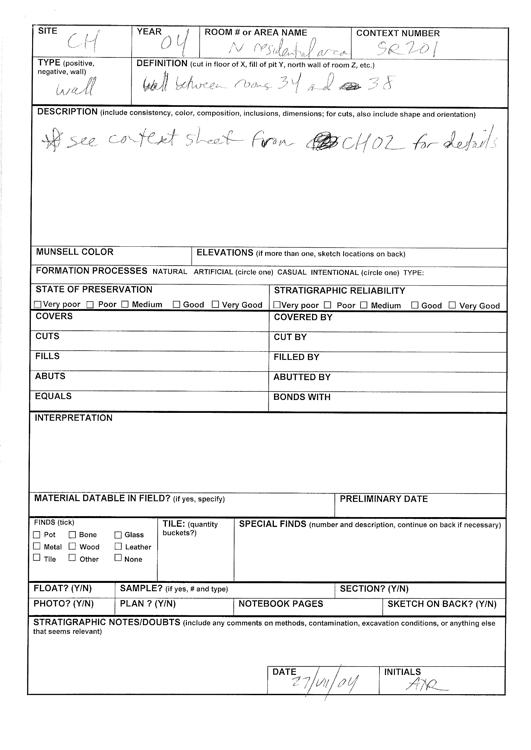 SITE YEAR ROOM # or AREA NAME CONTEXT NUMBER
CH 04 N residential area SR201
TYPE (positive, negative, wall) DEFINITION (cut in floor of X, fill of pit Y, north wall of room Z, etc.)
Wall Wall between rooms 34 and 38
DESCRIPTION (include consistency, color, composition, inclusions, dimensions; for cuts, also include shape and orientation)
* see context sheet from CH02 for details
MUNSELL COLOR ELEVATIONS (if more than one, sketch locations on back)
FORMATION PROCESSES NATURAL ARTIFICIAL (circle one) CASUAL INTENTIONAL (circle one) TYPE:
STATE OF PRESERVATION STRATIGRAPHIC RELIABILITY
☐Very poor ☐ Poor ☐ Medium ☐ Good ☐ Very Good ☐Very poor ☐ Poor ☐ Medium ☐ Good ☐ Very Good
COVERS COVERED BY
CUTS CUT BY
FILLS FILLED BY
ABUTS ABUTTED BY
EQUALS BONDS WITH
INTERPRETATION
MATERIAL DATABLE IN FIELD? (if yes, specify) PRELIMINARY DATE
FINDS (tick) TILE: (quantity buckets?) SPECIAL FINDS (number and description, continue on back if necessary)
☐ Pot ☐ Bone ☐ Glass
☐ Metal ☐ Wood ☐ Leather
☐ Tile ☐ Other ☐ None
FLOAT? (Y/N) SAMPLE? (if yes, # and type) SECTION? (Y/N)
PHOTO? (Y/N) PLAN ? (Y/N) NOTEBOOK PAGES SKETCH ON BACK? (Y/N)
STRATIGRAPHIC NOTES/DOUBTS (include any comments on methods, contamination, excavation conditions, or anything else
that seems relevant)
DATE INITIALS
27/VII/04